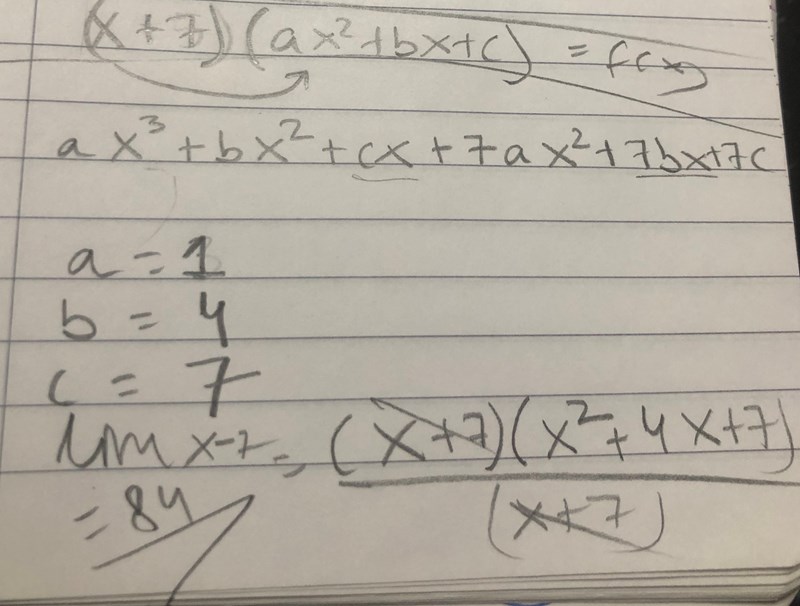 (x+7)(ax²+bx+c) = f(x)
ax³+bx²+cx+7ax²+7bx+7c
a = 1
b = 4
c = 7
lim x-7 = (x+7)(x²+4x+7)
(x+7)
= 84